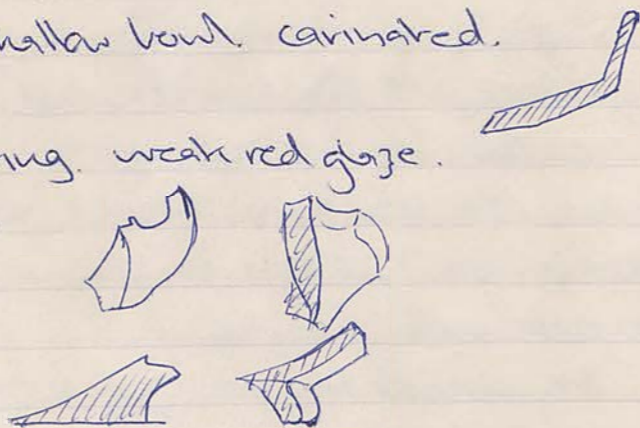 hallow bowl. carinated.
ring. weak red glaze.